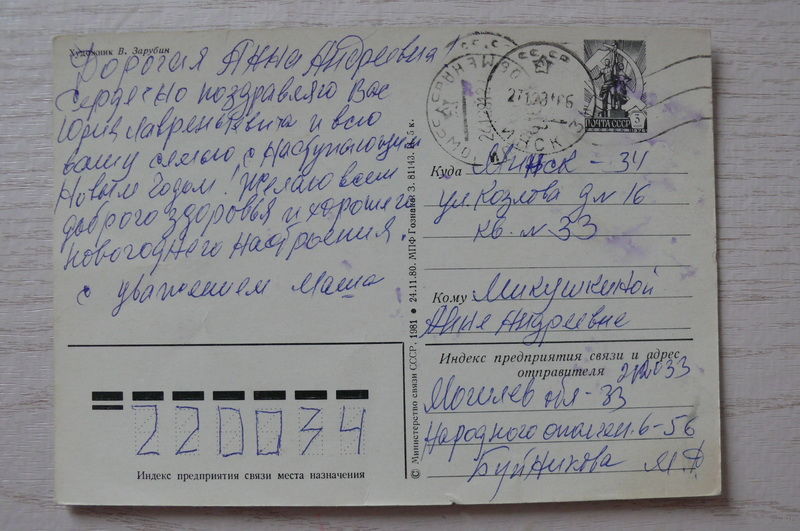 Художник В. Зарубин
Дорогая Анна Андреевна!
Сердечно поздравляю Вас
Юрия Лаврентьевича и всю
вашу семью с наступающим
Новым годом! Желаю всем
доброго здоровья и хорошего
новогоднего настроения.
с уважением Маша
ПОЧТА СССР
3
МИНСК
Куда Минск - 34
ул. Козлова д № 16
кв. № 33
Кому Микушкиной
Анне Андреевне
Индекс предприятия связи и адрес
отправителя 212033
Могилев обл-33
Народного ополчен. 6-56
Буйникова М.Ф
220034
Индекс предприятия связи места назначения
© Министерство связи СССР. 1981 • 24.11.80. МПФ Гознака. З. 81143. Ц. 5 к.